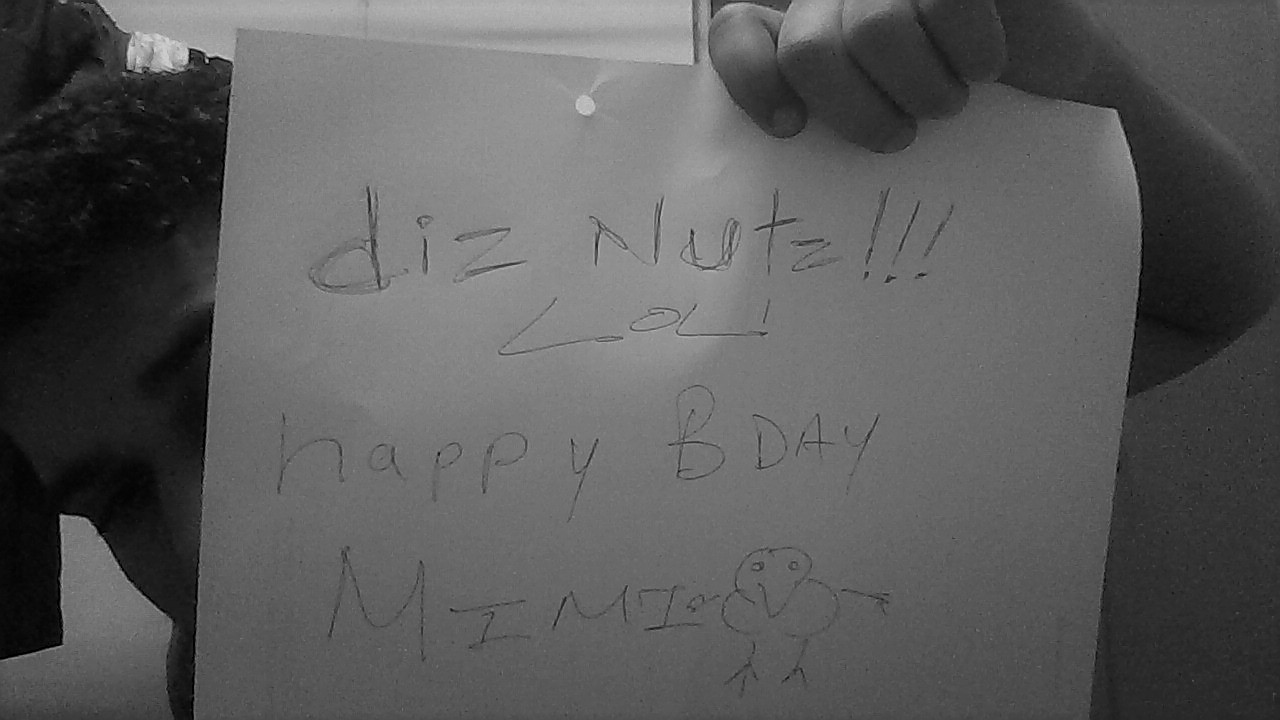 diz Nutz!!!
LOL!
happy BDAY
MIMI